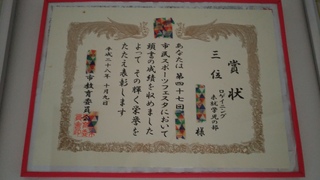 賞状
三位
ロゲイニング
未就学児の部
様
あなたは第四十七回
市民スポーツフェスタにおいて
頭書の成績を収めました
よって その輝く栄誉を
たたえ表彰します
平成二十八年 十月九日
市教育委員会